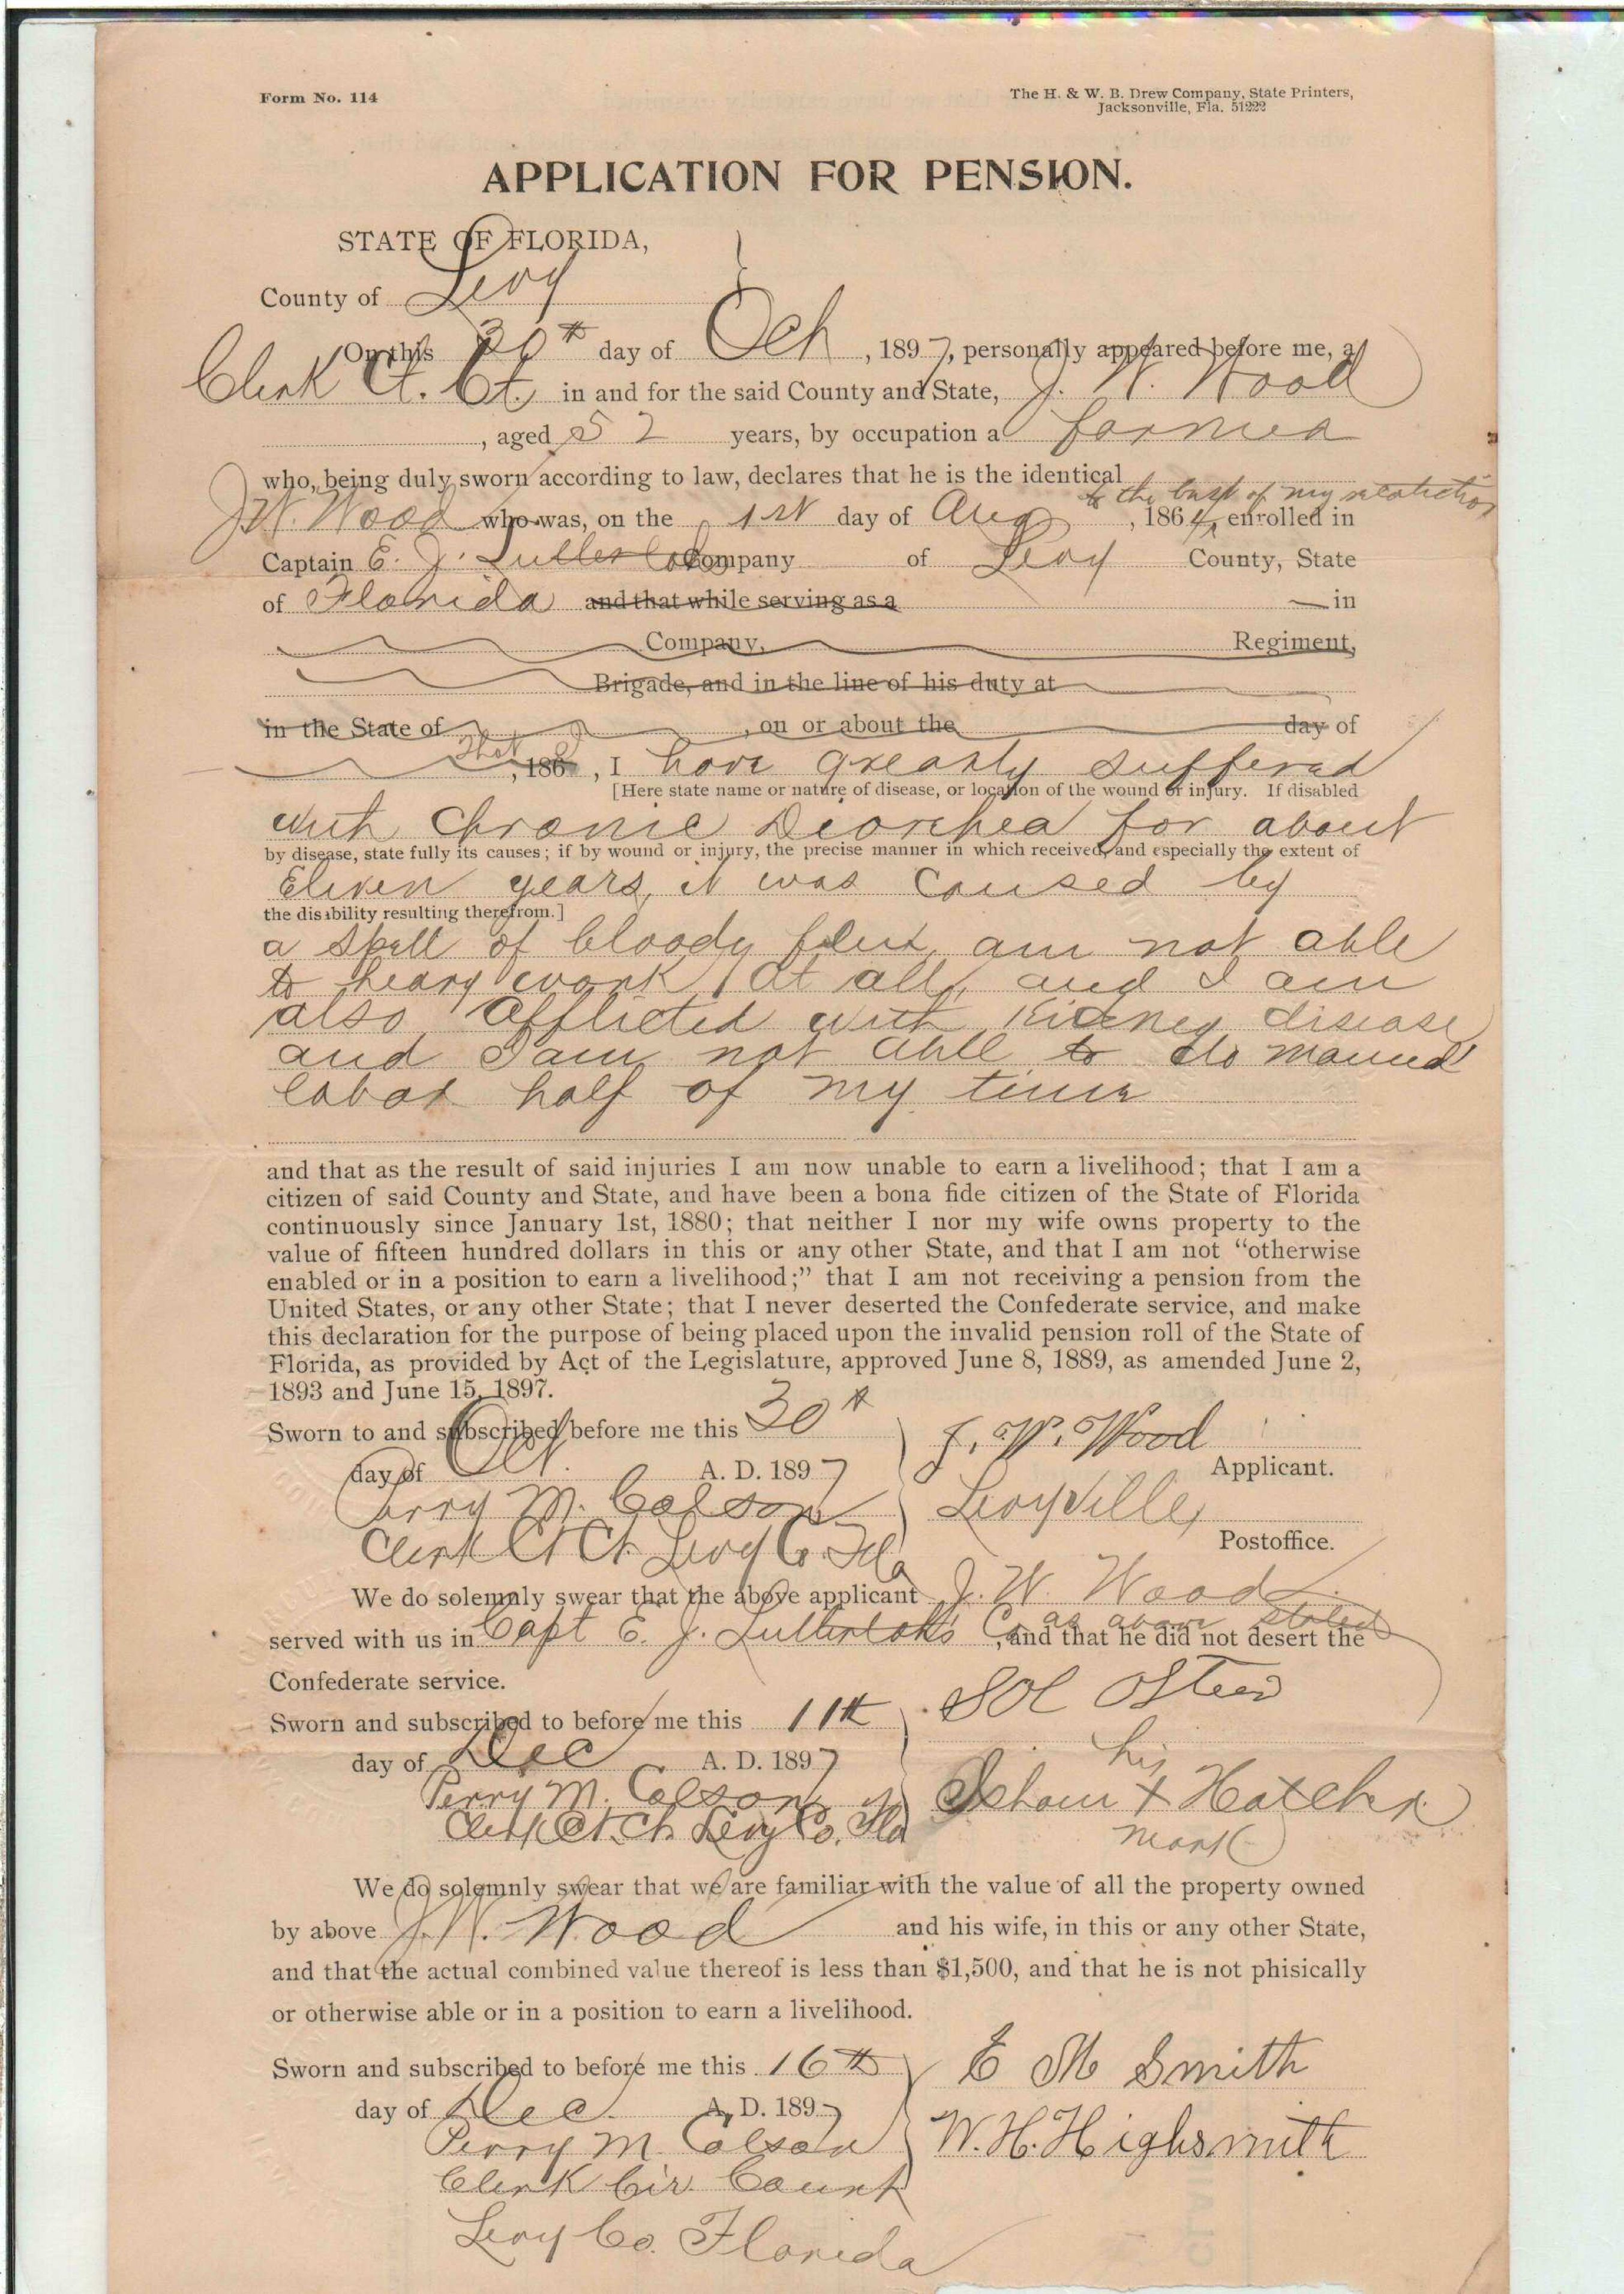 Form No. 114
The H. & W. B. Drew Company, State Printers,
Jacksonville, Fla. 51222
APPLICATION FOR PENSION.
STATE OF FLORIDA,
County of Levy
On this 30th day of Oct, 1897, personally appeared before me, a
Clerk Ct. Ct. in and for the said County and State, J. W. Wood
, aged 52 years, by occupation a farmer
who, being duly sworn according to law, declares that he is the identical
to the best of my
J W. Wood who was, on the 1st day of Aug, 1864, enrolled in
Captain E. J. Lutterlohs Company of Levy County, State
of Florida and that while serving as a in
Company, Regiment,
Brigade, and in the line of his duty at
in the State of , on or about the day of
that
, 186 , I have greatly suffered
[Here state name or nature of disease, or location of the wound or injury. If disabled
with Chronic Diorrhea for about
by disease, state fully its causes; if by wound or injury, the precise manner in which received, and especially the extent of
Eleven years, it was caused by
the disability resulting therefrom.]
a spell of bloody flux, am not able
to heavy work at all, and I am
also Afflicted with Kidney disease
and I am not able to do manual
labor half of my time
and that as the result of said injuries I am now unable to earn a livelihood; that I am a
citizen of said County and State, and have been a bona fide citizen of the State of Florida
continuously since January 1st, 1880; that neither I nor my wife owns property to the
value of fifteen hundred dollars in this or any other State, and that I am not “otherwise
enabled or in a position to earn a livelihood;” that I am not receiving a pension from the
United States, or any other State; that I never deserted the Confederate service, and make
this declaration for the purpose of being placed upon the invalid pension roll of the State of
Florida, as provided by Act of the Legislature, approved June 8, 1889, as amended June 2,
1893 and June 15, 1897.
Sworn to and subscribed before me this 30th
J. W. Wood
day of Oct. A. D. 1897
Applicant.
Perry M. Colson
Levyville,
Clerk Ct Ct. Levy Co. Fla
Postoffice.
We do solemnly swear that the above applicant J. W. Wood
served with us in Capt E. J. Lutterloh's Co as above stated, and that he did not desert the
Confederate service.
Sworn and subscribed to before me this 11th
Sol Osteen
day of Dec A. D. 1897
his
Perry M. Colson
Isham X Hatcher
Clerk Ct. Ct. Levy Co. Fla
mark
We do solemnly swear that we are familiar with the value of all the property owned
by above J. W. Wood and his wife, in this or any other State,
and that the actual combined value thereof is less than $1,500, and that he is not phisically
or otherwise able or in a position to earn a livelihood.
Sworn and subscribed to before me this 16th
E M Smith
day of Dec. A. D. 1897
Perry M Colson
W. H. Highsmith
Clerk Cir. Court
Levy Co. Florida